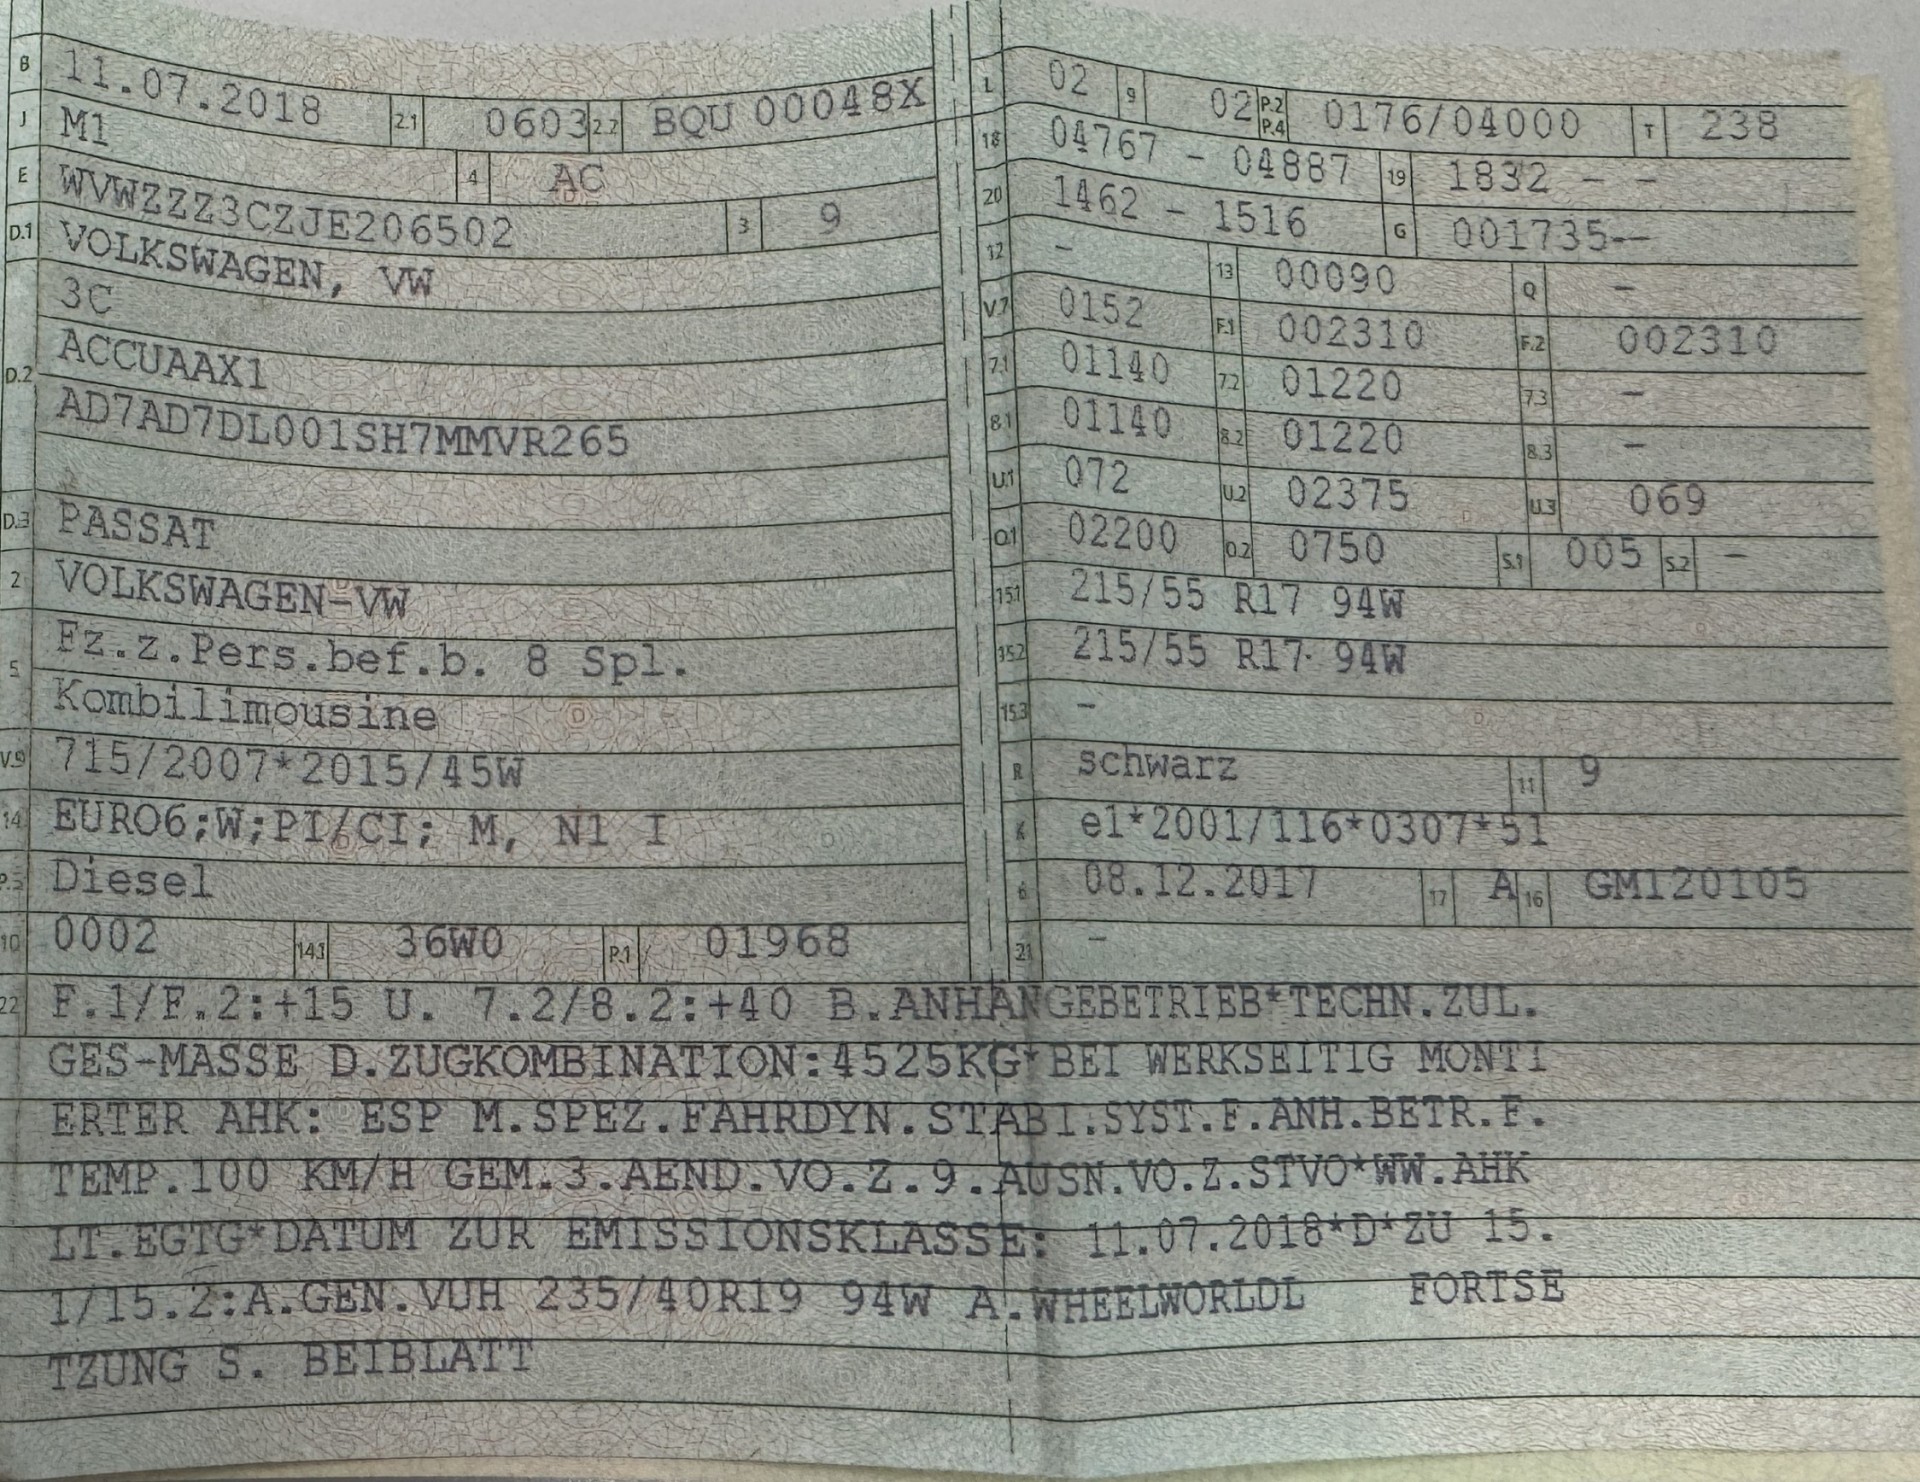 B 11.07.2018 2.1 0603 2.2 BQU 00048X
J M1 4 AC
E WVWZZZ3CZJE206502 3 9
D.1 VOLKSWAGEN, VW
3C
D.2 ACCUAAX1
AD7AD7DL001SH7MMVR265
D.3 PASSAT
2 VOLKSWAGEN-VW
5 Fz.z.Pers.bef.b. 8 Spl.
Kombilimousine
V.9 715/2007*2015/45W
14 EURO6;W;PI/CI; M, N1 I
P.3 Diesel
10 0002 14.1 36W0 P.1 01968
L 02 9 02 P.2 P.4 0176/04000 T 238
18 04767 - 04887 19 1832 - -
20 1462 - 1516 G 001735--
12 - 13 00090 Q -
V.7 0152 F.1 002310 F.2 002310
7.1 01140 7.2 01220 7.3 -
8.1 01140 8.2 01220 8.3 -
U.1 072 U.2 02375 U.3 069
O.1 02200 O.2 0750 S.1 005 S.2 -
15.1 215/55 R17 94W
15.2 215/55 R17 94W
15.3 -
R schwarz 11 9
K e1*2001/116*0307*51
6 08.12.2017 17 A 16 GM120105
21 -
22 F.1/F.2:+15 U. 7.2/8.2:+40 B.ANHÄNGEBETRIEB*TECHN.ZUL.
GES-MASSE D.ZUGKOMBINATION:4525KG*BEI WERKSEITIG MONTI
ERTER AHK: ESP M.SPEZ.FAHRDYN.STABI.SYST.F.ANH.BETR.F.
TEMP.100 KM/H GEM.3.AEND.VO.Z.9.AUSN.VO.Z.STVO*WW.AHK
LT.EGTG*DATUM ZUR EMISSIONSKLASSE: 11.07.2018*D*ZU 15.
1/15.2:A.GEN.VUH 235/40R19 94W A.WHEELWORLDL FORTSE
TZUNG S. BEIBLATT